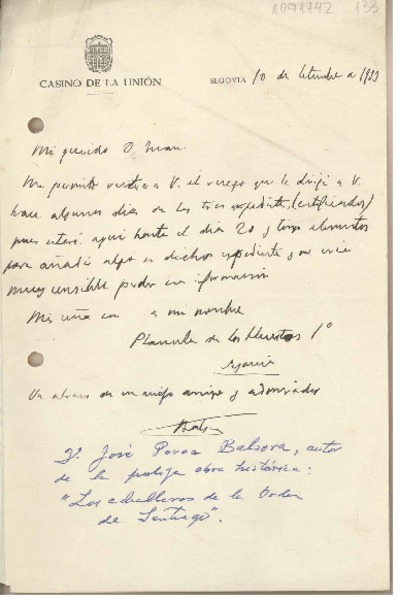 1091142 133
CASINO DE LA UNIÓN
SEGOVIA 10 de Setiembre a 1933
Mi querido D. Juan:
Me permito reiterar a V. el ruego que le dirigí a V.
hace algunos días de los tres expedientes (certificados)
pues estaré aquí hasta el día 20 y tengo elementos
para añadir algo en dichos expedientes y me sería
muy sensible perder esa información
a mi nombre
Plazuela de los Huertos 1º
Segovia
Un abrazo de su viejo amigo y admirador
D. José Perez Balsera, autor
de la prolija obra histórica:
"Los caballeros de la Orden
de Santiago".